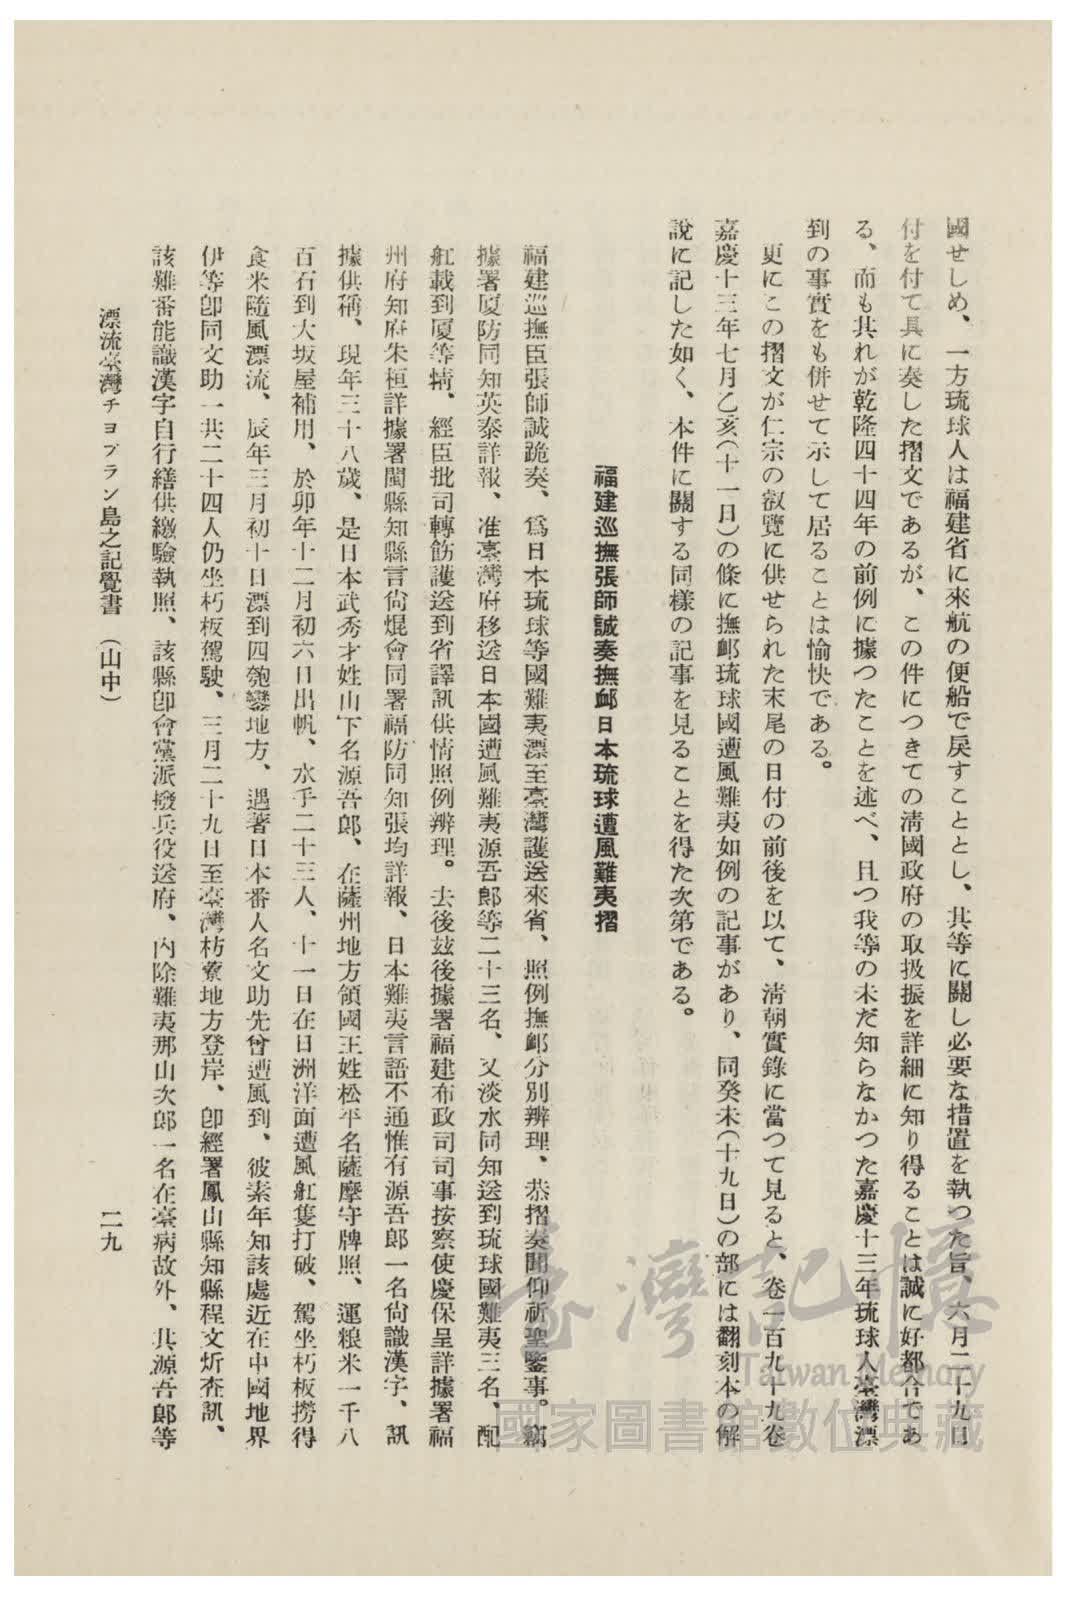 國せしめ、一方琉球人は福建省に來航の便船で戻すこととし、其等に關し必要な措置を執つた旨、六月二十九日
付を付て具に奏した摺文であるが、この件につきての淸國政府の取扱振を詳細に知り得ることは誠に好都合であ
る、而も其れが乾隆四十四年の前例に據つたことを述べ、且つ我等の未だ知らなかつた嘉慶十三年琉球人臺灣漂
到の事實をも併せて示して居ることは愉快である。
更にこの摺文が仁宗の叡覽に供せられた末尾の日付の前後を以て、淸朝實錄に當つて見ると、卷一百九十九卷
嘉慶十三年七月乙亥(十一日)の條に撫邺琉球國遭風難夷如例の記事があり、同癸未(十九日)の部には翻刻本の解
說に記した如く、本件に關する同樣の記事を見ることを得た次第である。
福建巡撫張師誠奏撫邺日本琉球遭風難夷摺
福建巡撫臣張師誠跪奏、爲日本琉球等國難夷漂至臺灣護送來省、照例撫邺分別辨理、恭摺奏聞仰祈聖鑒事。竊
據署厦防同知英泰詳報、准臺灣府移送日本國遭風難夷源吾郞等二十三名、又淡水同知送到琉球國難夷三名、配
舡載到厦等情、經臣批司轉飭護送到省譯訊供情照例辨理。去後玆後據署福建布政司司事按察使慶保呈詳據署福
州府知府朱桓詳據署閩縣知縣言尙焜會同署福防同知張均詳報、日本難夷言語不通惟有源吾郞一名尙識漢字、訊
據供稱、現年三十八歲、是日本武秀才姓山下名源吾郞、在薩州地方領國王姓松平名薩摩守牌照、運粮米一千八
百石到大坂屋補用、於卯年十二月初六日出帆、水手二十三人、十一日在日洲洋面遭風舡隻打破、駕坐朽板撈得
食米隨風漂流、辰年三月初十日漂到四匏鑾地方、遇著日本番人名文助先曾遭風到、彼素年知該處近在中國地界
伊等卽同文助一共二十四人仍坐朽板駕駛、三月二十九日至臺灣枋寮地方登岸、卽經署鳳山縣知縣程文炘査訊、
該難番能識漢字自行繕供繳驗執照、該縣卽會黨派撥兵役送府、內除難夷那山次郞一名在臺病故外、其源吾郞等
漂流臺灣チヨプラン島之記覺書 (山中)
二九
臺灣記憶
Taiwan Memory
國家圖書館數位典藏